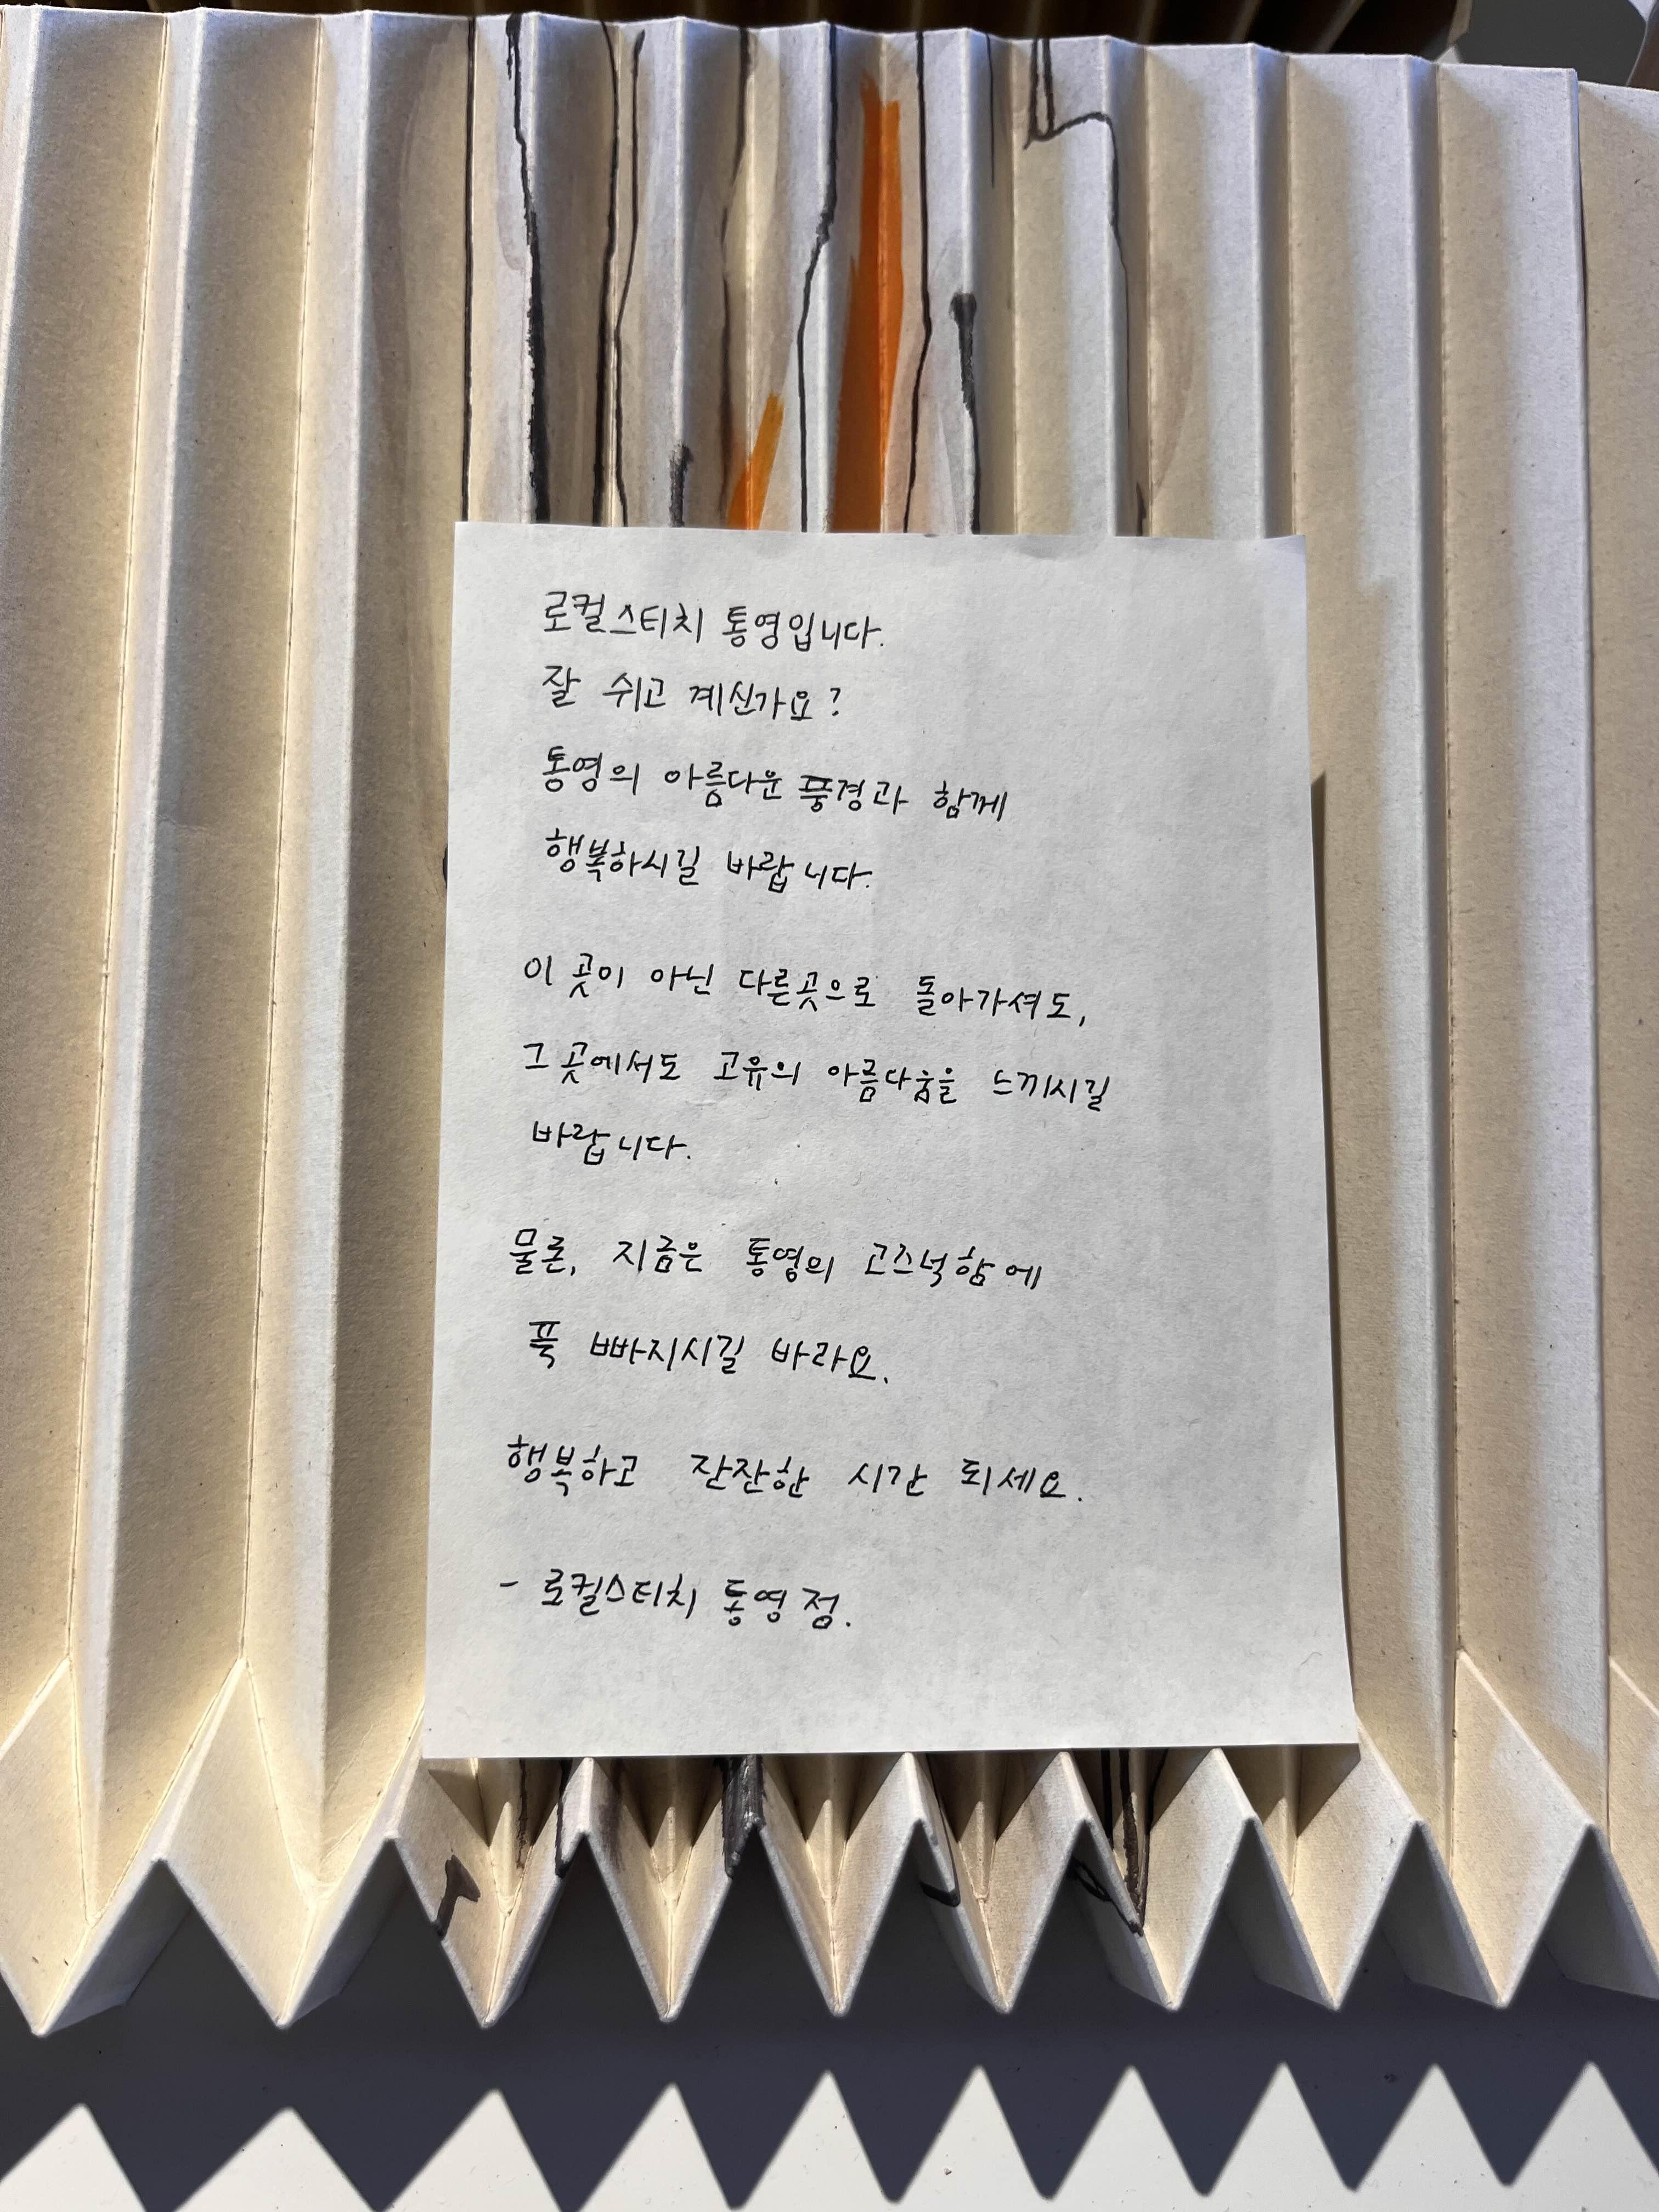 로컬스티치 통영입니다.
잘 쉬고 계신가요?
통영의 아름다운 풍경과 함께
행복하시길 바랍니다.
이 곳이 아닌 다른곳으로 돌아가셔도,
그 곳에서도 고유의 아름다움을 느끼시길
바랍니다.
물론, 지금은 통영의 고즈넉함에
푹 빠지시길 바라요.
행복하고 잔잔한 시간 되세요.
- 로컬스티치 통영점.